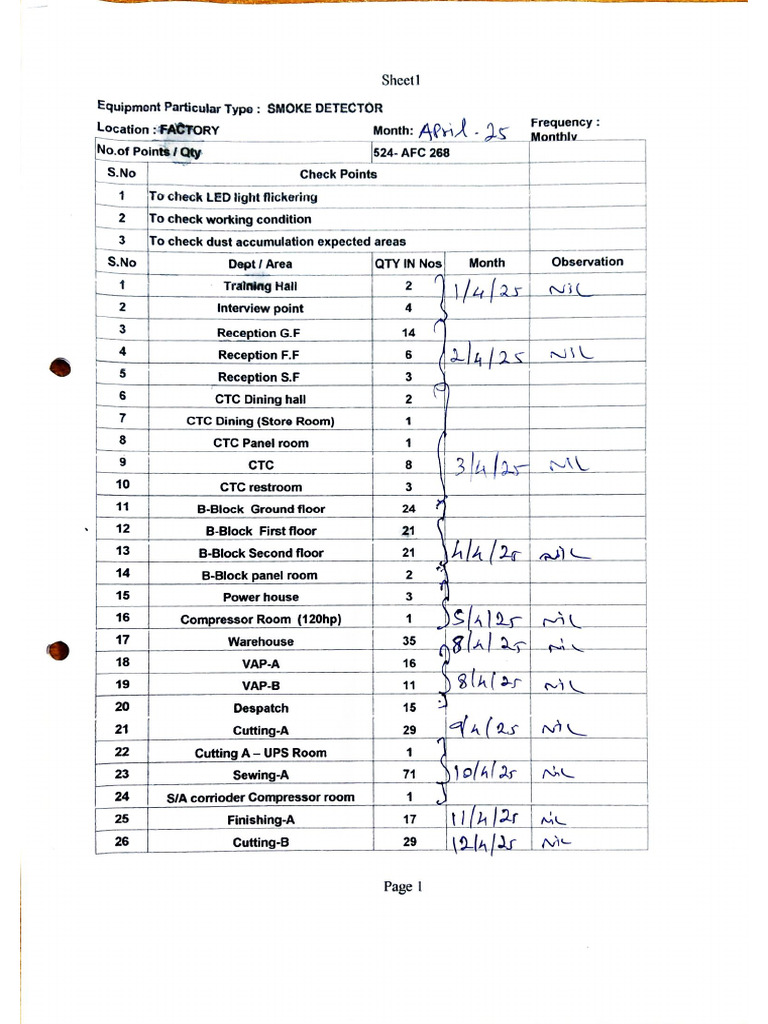 Sheet1
Equipment Particular Type : SMOKE DETECTOR
Location : FACTORY Month: April - 25 Frequency : Monthly
No.of Points / Qty 524- AFC 268
S.No Check Points
1 To check LED light flickering
2 To check working condition
3 To check dust accumulation expected areas
S.No Dept / Area QTY IN Nos Month Observation
1 Training Hall 2 1/4/25 NIL
2 Interview point 4
3 Reception G.F 14
4 Reception F.F 6 2/4/25 NIL
5 Reception S.F 3
6 CTC Dining hall 2
7 CTC Dining (Store Room) 1
8 CTC Panel room 1
9 CTC 8 3/4/25 NIL
10 CTC restroom 3
11 B-Block Ground floor 24
12 B-Block First floor 21
13 B-Block Second floor 21 4/4/25 NIL
14 B-Block panel room 2
15 Power house 3
16 Compressor Room (120hp) 1 5/4/25 NIL
17 Warehouse 35 8/4/25 NIL
18 VAP-A 16
19 VAP-B 11 8/4/25 NIL
20 Despatch 15
21 Cutting-A 29 9/4/25 NIL
22 Cutting A – UPS Room 1
23 Sewing-A 71 10/4/25 NIL
24 S/A corrioder Compressor room 1
25 Finishing-A 17 11/4/25 NIL
26 Cutting-B 29 12/4/25 NIL
Page 1